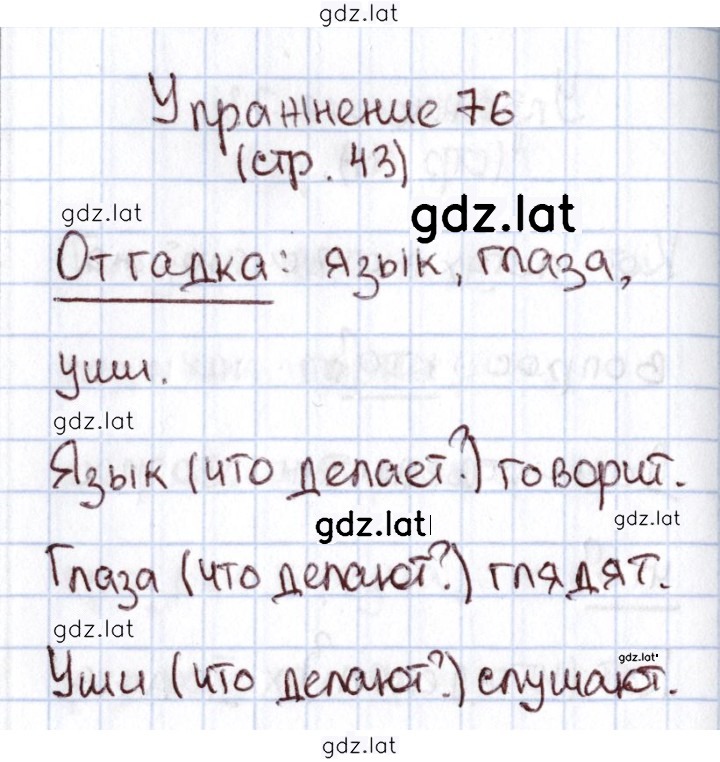 gdz.lat
Упражнение 76
(стр. 43)
gdz.lat
gdz.lat
Отгадка: язык, глаза,
уши.
gdz.lat
Язык (что делает?) говорит.
gdz.lat
gdz.lat
Глаза (что делают?) глядят.
gdz.lat
gdz.lat
Уши (что делают?) слушают.
gdz.lat